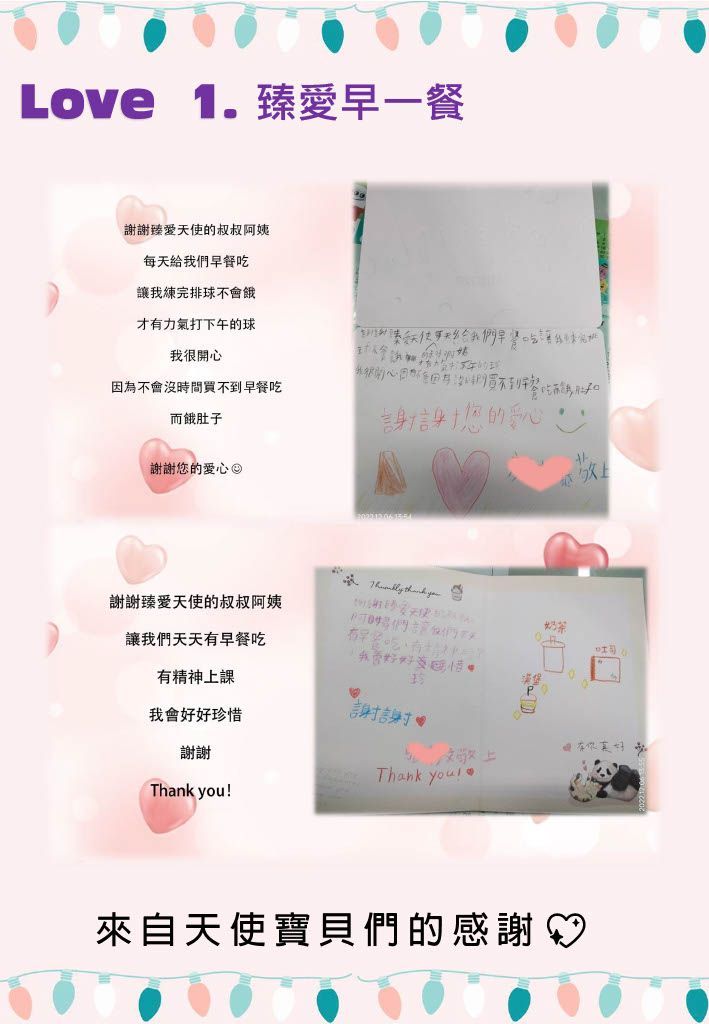 Love 1. 臻愛早一餐
謝謝臻愛天使的叔叔阿姨
每天給我們早餐吃
讓我練完排球不會餓
才有力氣打下午的球
我很開心
因為不會沒時間買不到早餐吃
而餓肚子
謝謝您的愛心☺
謝謝您的愛心
敬上
2022.12.06 13:54
謝謝臻愛天使的叔叔阿姨
讓我們天天有早餐吃
有精神上課
我會好好珍惜
謝謝
Thank you!
I humbly thank you
謝謝
敬上
Thank you!
奶茶
吐司
漢堡
P
有你真好
來自天使寶貝們的感謝